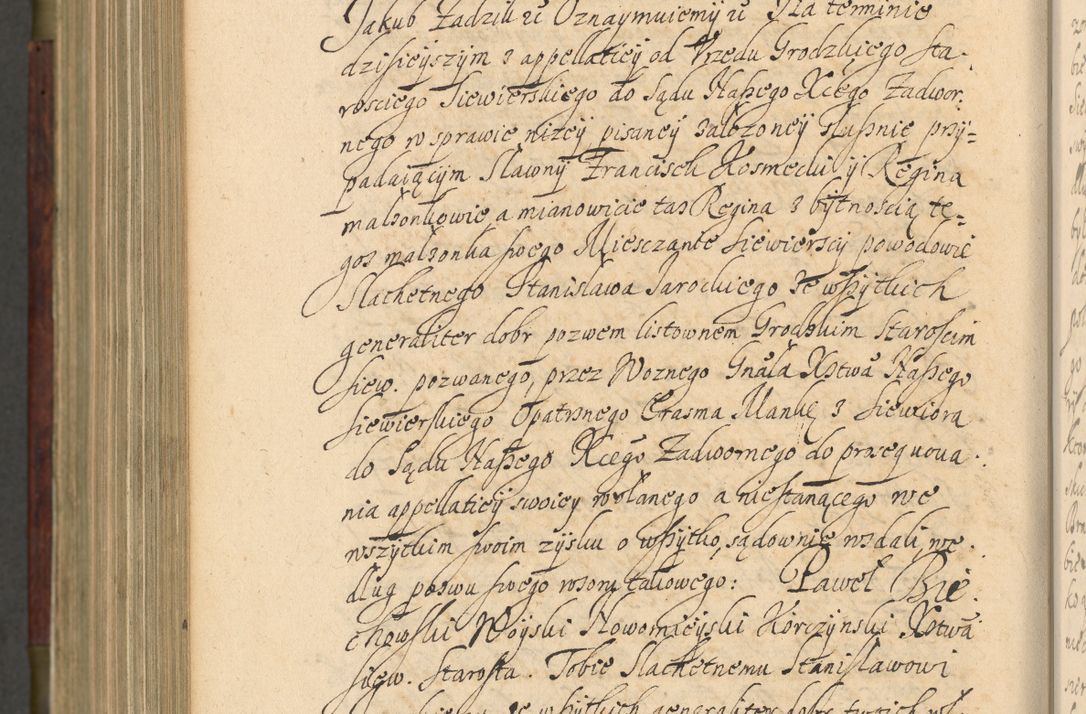 Jakub Zadzik etc Oznaymuiemy etc Iza terminie
dzisieyszym z appellatiey od Vrzedu Grodzkiego sta-
rosciego Siewierskiego do Sądu Naszego Xcego Zadwor-
nego w sprawie nizey pisaney załozoney słusznie przy-
padaiącym Sławny Francisek Kosmecki y Regina
małzonkowie, a mianowicie taz Regina z bytnoscią te-
goz małzonka swego Miesczanie Siewierscy powodowie
Slachetnego Stanisława Jarockiego ze wszytkich
generaliter dobr pozwem listownem Grodzkim Staroscim
Siew. pozwanego, przez Woznego Gnala Xstwa Naszego
Siewierskiego Opatrznego Erasma Mankę z Siewiora
do Sądu Naszego Xcego Zadwornego do prosequowa-
nia appellatiey swoiey wołanego a niestanącego we
wszytkim swoim zysku o wszytko, sądownie wzdali, we-
dług pozwu swego wzoru takowego: Paweł Bie-
chowski Woyski Nowomieyski Korczynski Xstwa
Siew. Starosta. Tobie Slachetnemu Stanisławowi
ze wszytkich generaliter dobr twoich